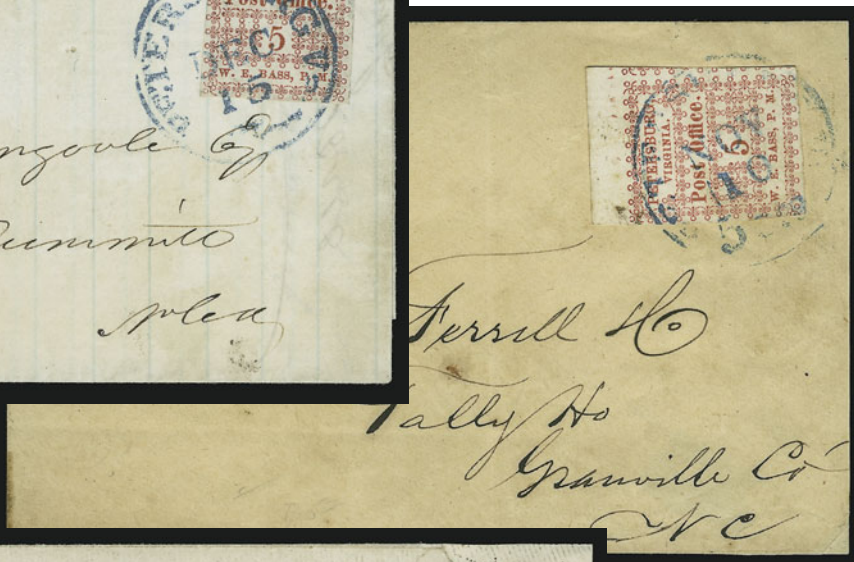 Post Office.
5
W. E. BASS, P. M.
PETERSBURG VA
DEC
15
Summitt
PETERSBURG
VIRGINIA.
Post Office.
5
W. E. BASS, P. M.
NOV
10
5
Ferrill Ho
Tally Ho
Granville Co
N C